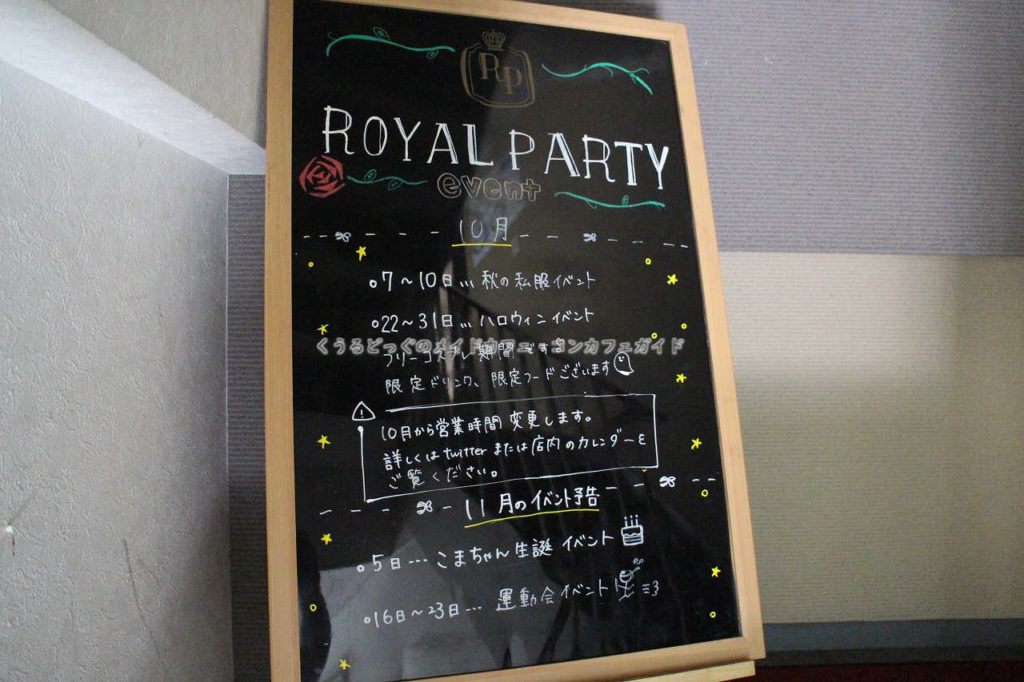 RP
ROYAL PARTY
event
10月
7～10日… 秋の私服イベント
22～31日… ハロウィンイベント
くうるどっぐのメイドカフェ・コンカフェガイド
フリーコスプレ期間です
限定ドリンク、限定フードございます
10月から営業時間変更します。
詳しくはtwitterまたは店内のカレンダーを
ご覧ください。
11月のイベント予告
5日… こまちゃん生誕 イベント
16日～23日… 運動会イベント